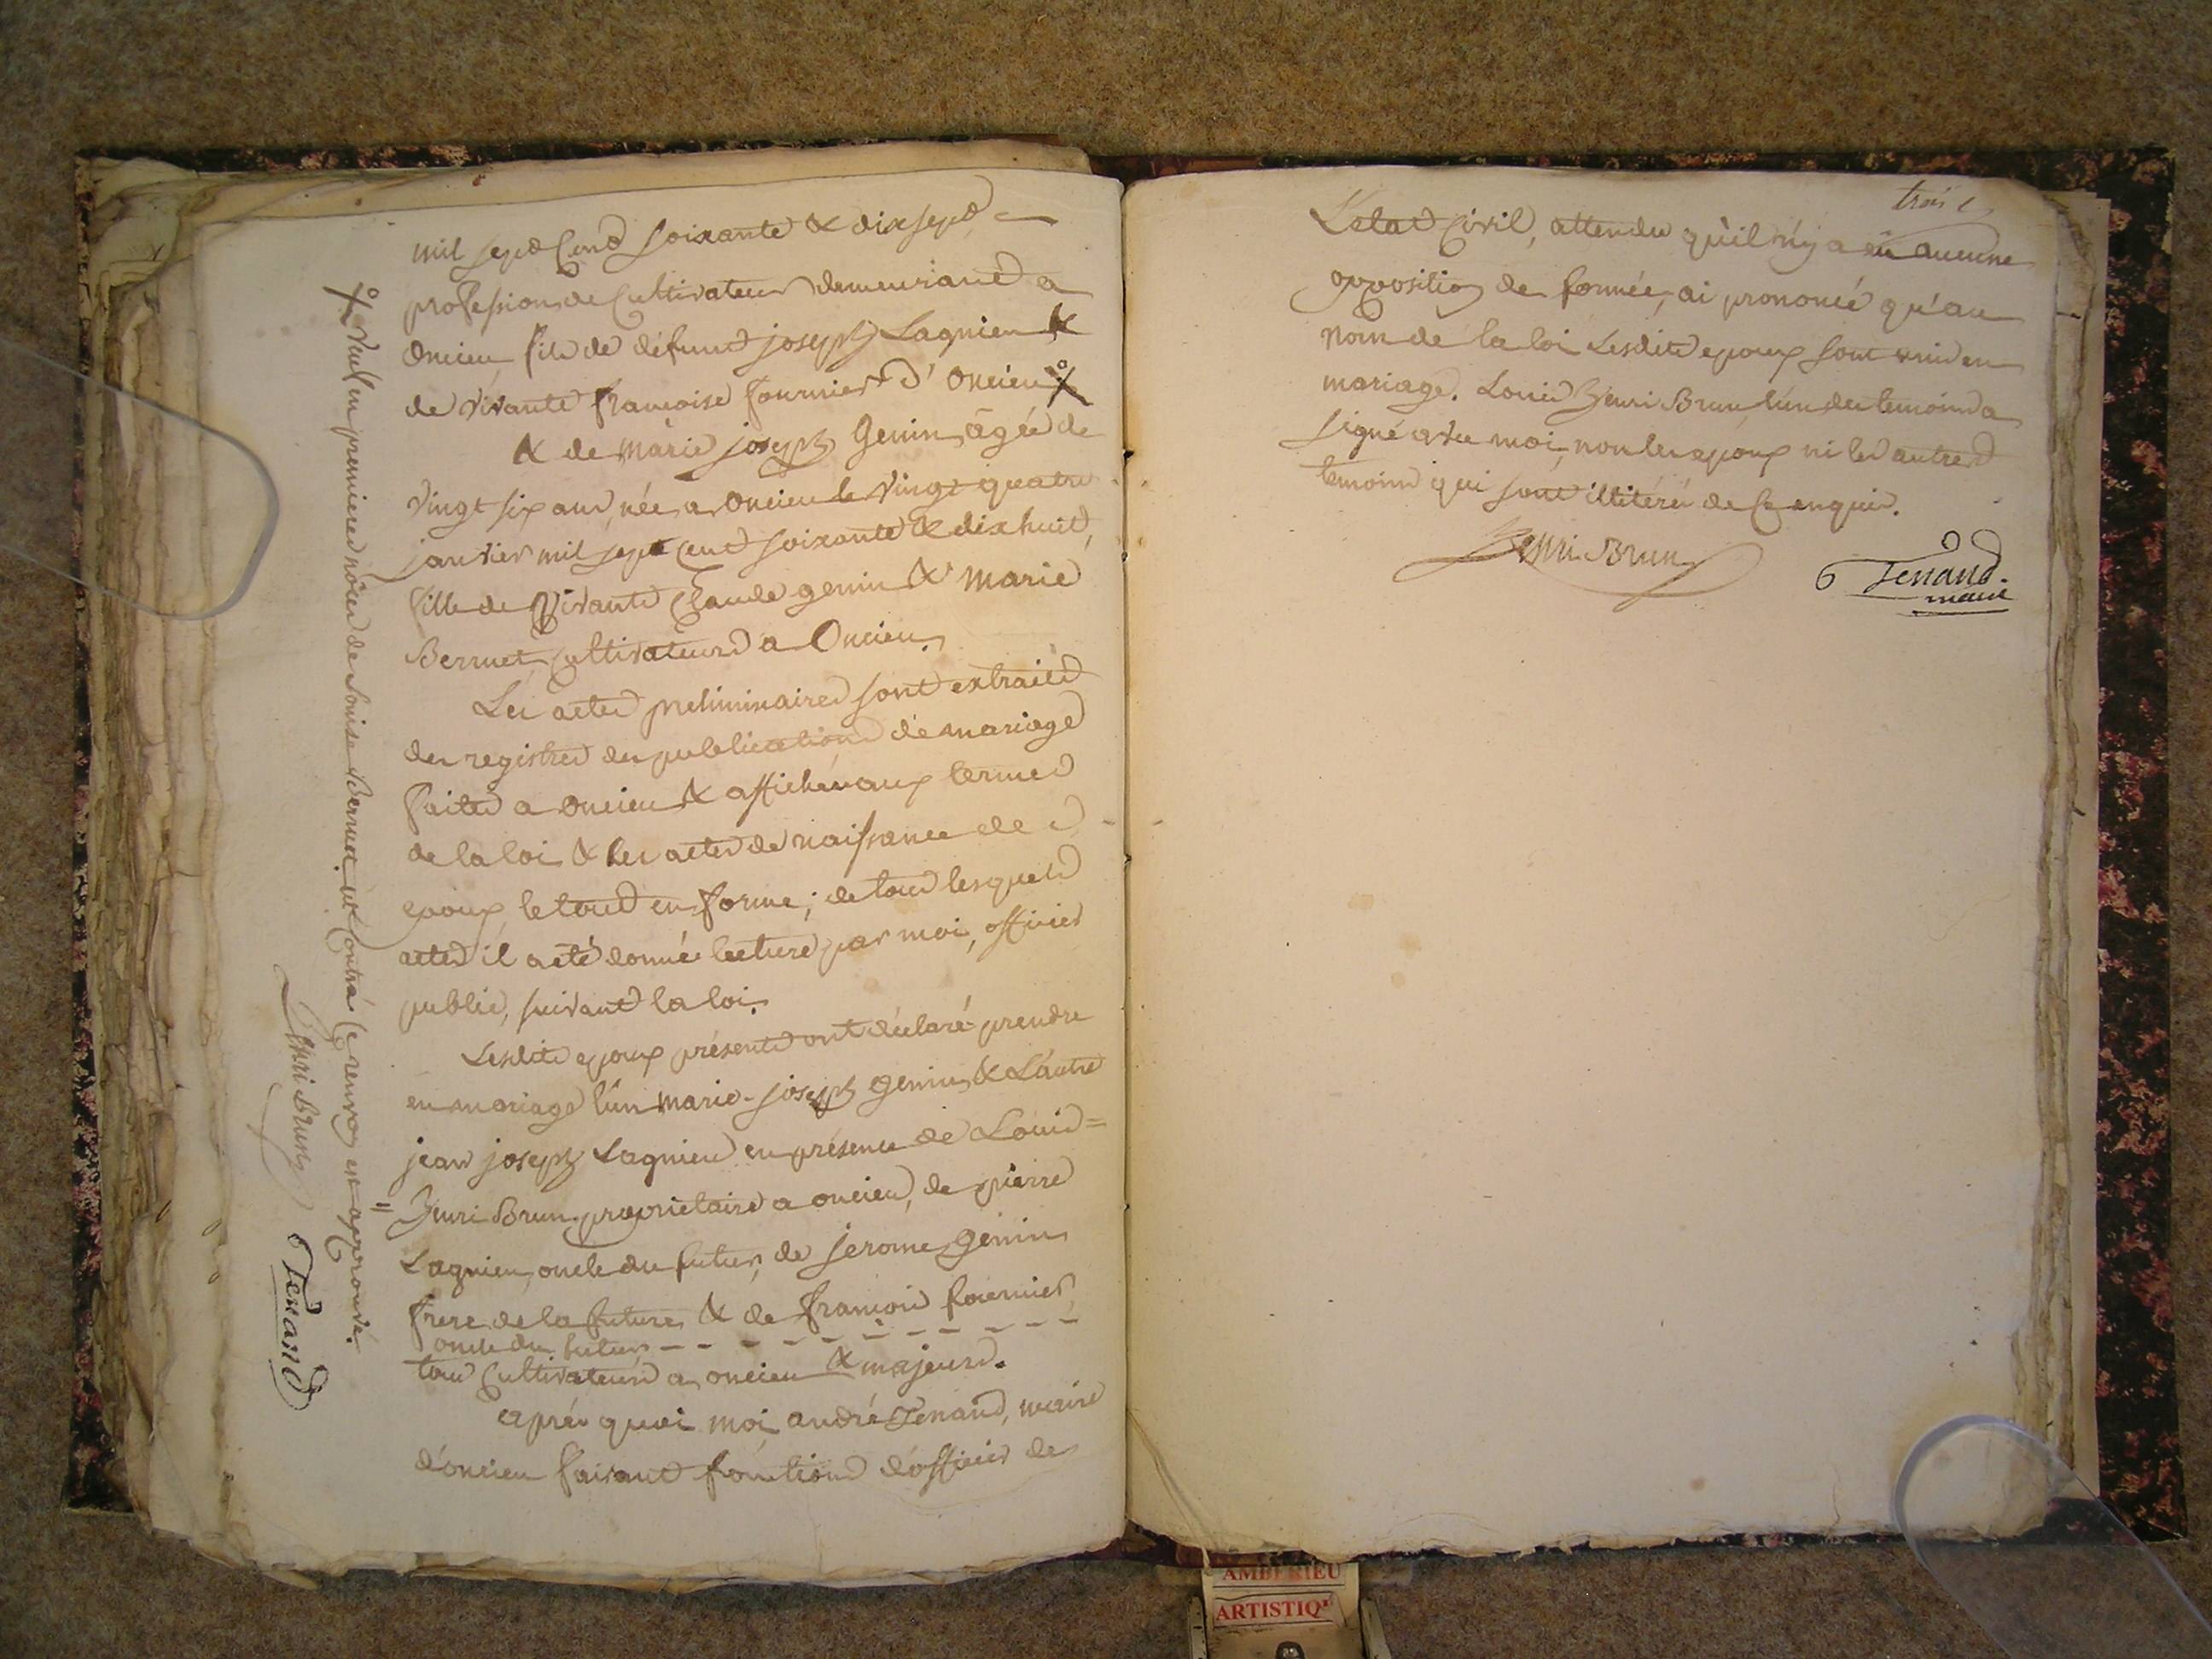 mil sept Cent soixante & dix sept =
profession de Cultivateur demeurant a
oncieu, fils de défunt joseph Lagnieu &
de vivante françoise fournier d'oncieu
& de marie joseph Genin, âgée de
vingt six ans, née a oncieu le vingt quatre
janvier mil sept cent soixante & dix huit,
fille de vivants Claude genin & marie
Berruet, Cultivateurs a Oncieu.
Les actes preliminaires sont extraits
des registres des publications de mariage
faites a oncieu & affichées aux termes
de la loi & les actes de naissance des
epoux, le tout en forme; de tous lesquels
actes il a été donné lecture par moi, officier
public, suivant la loi.
Lesdits epoux présents ont déclaré prendre
en mariage l'un marie-joseph genin, & L'autre
jean joseph Lagnieu en présence de Louis =
henri Brun, propriétaire a oncieu, de pierre
Lagnieu, oncle du futur, de jerome genin
frere de la future & de françois fournier,
oncle du futur
tous Cultivateurs a oncieu & majeurs.
après quoi moi, andré Tenand, maire
d'oncieu faisant fonctions d'officier de
veuf en premieres nôces de Louise Berruet Ce renvoy est approuvé.
henri Brun
Tenand
trois
L'etat Civil, attendu qu'il n'y a eu aucune
opposition de formée, ai prononcé qu'au
nom de la loi Lesdits epoux sont unis en
mariage. Louis henri Brun l'un des temoins a
signé avec moi, non les epoux ni les autres
temoins qui sont illitérés de Ce enquis.
henri Brun
Tenand.
maire
AMBERIEU
ARTISTIQ